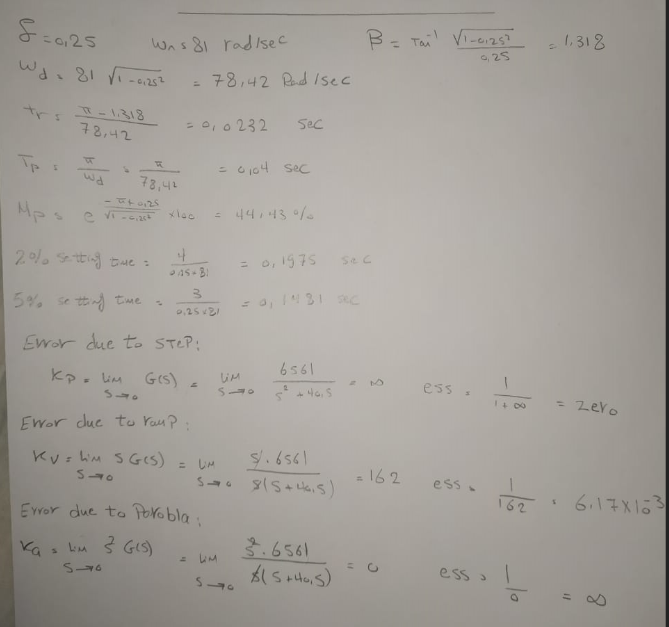 δ = 0,25   Wn = 81 rad/sec   β = Tan⁻¹ √(1-0,25²) / 0,25 = 1,318
Wd = 81 √(1-0,25²) = 78,42 Rad/sec
tr = (π - 1,318) / 78,42 = 0,0232 sec
Tp = π / Wd = π / 78,42 = 0,04 sec
Mp = e^(-π*0,25 / √(1-0,25²)) *100 = 44,43 %
2% setting time = 4 / (0,25*81) = 0,1975 sec
5% setting time = 3 / (0,25*81) = 0,1481 sec
Error due to STEP:
Kp = Lim S→0 G(S) = Lim S→0 6561 / (S² + 40,5) = ∞   ess = 1 / (1+∞) = Zero
Error due to ramp:
KV = Lim S→0 S G(S) = Lim S→0 S.6561 / S(S+40,5) = 162   ess = 1 / 162 = 6,17X10⁻³
Error due to Porobla:
Ka = Lim S→0 S² G(S) = Lim S→0 S².6561 / S(S+40,5) = 0   ess = 1 / 0 = ∞